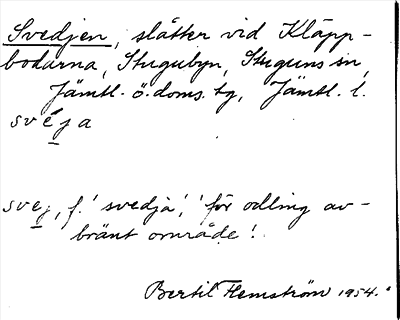 Svedjen, slåtter vid Kläpp-
bodarna, Stugubyn, Stuguns sn,
Jämtl. ö. doms. tg, Jämtl. l.
svéja
svej, f. 'svedja', 'för odling av-
bränt område'.
Bertil Flemström 1954.